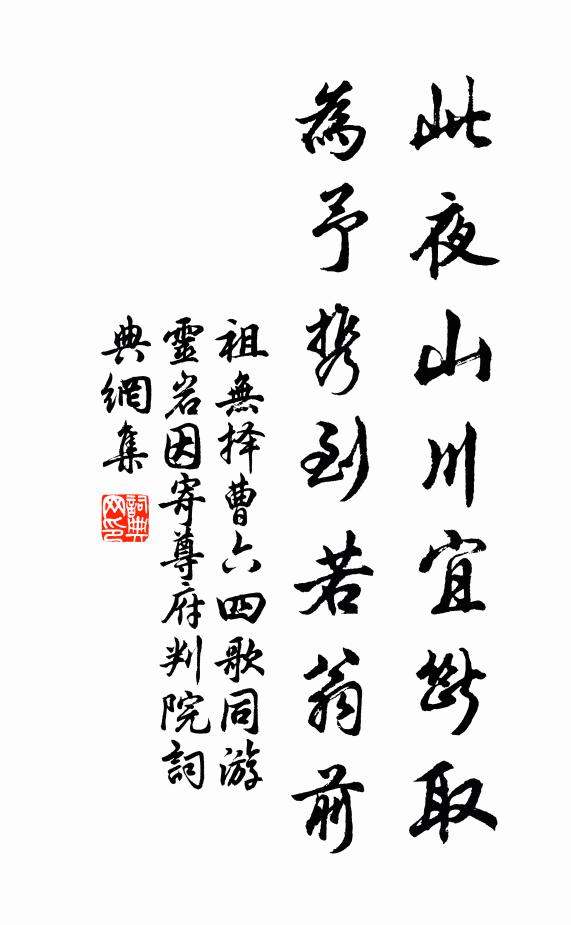 此夜山川宜斷取
為予攜到若翁前
祖無择曹六四歌同游
靈岩因寄尊府判院詞
典網集
詞典網印